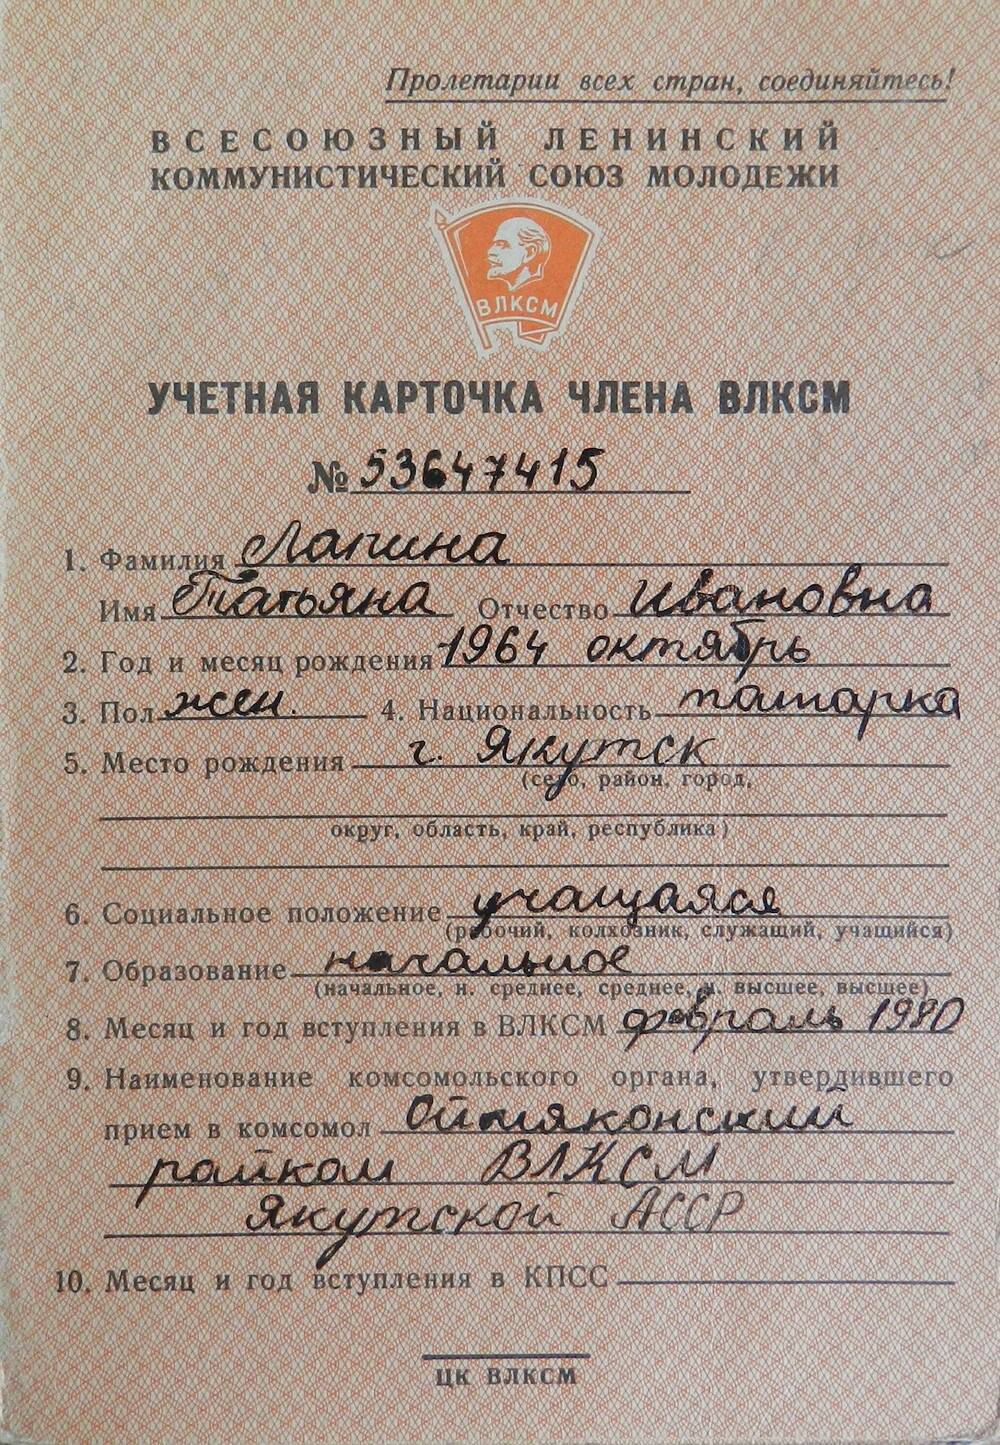 Пролетарии всех стран, соединяйтесь!
ВСЕСОЮЗНЫЙ ЛЕНИНСКИЙ
КОММУНИСТИЧЕСКИЙ СОЮЗ МОЛОДЕЖИ
ВЛКСМ
УЧЕТНАЯ КАРТОЧКА ЧЛЕНА ВЛКСМ
№ 53647415
1. Фамилия Лапина
Имя Татьяна Отчество Ивановна
2. Год и месяц рождения 1964 октябрь
3. Пол жен. 4. Национальность татарка
5. Место рождения г. Якутск
(село, район, город,
округ, область, край, республика)
6. Социальное положение учащаяся
(рабочий, колхозник, служащий, учащийся)
7. Образование начальное
(начальное, н. среднее, среднее, н. высшее, высшее)
8. Месяц и год вступления в ВЛКСМ февраль 1980
9. Наименование комсомольского органа, утвердившего
прием в комсомол Оймяконский
райком ВЛКСМ
Якутской АССР
10. Месяц и год вступления в КПСС
ЦК ВЛКСМ